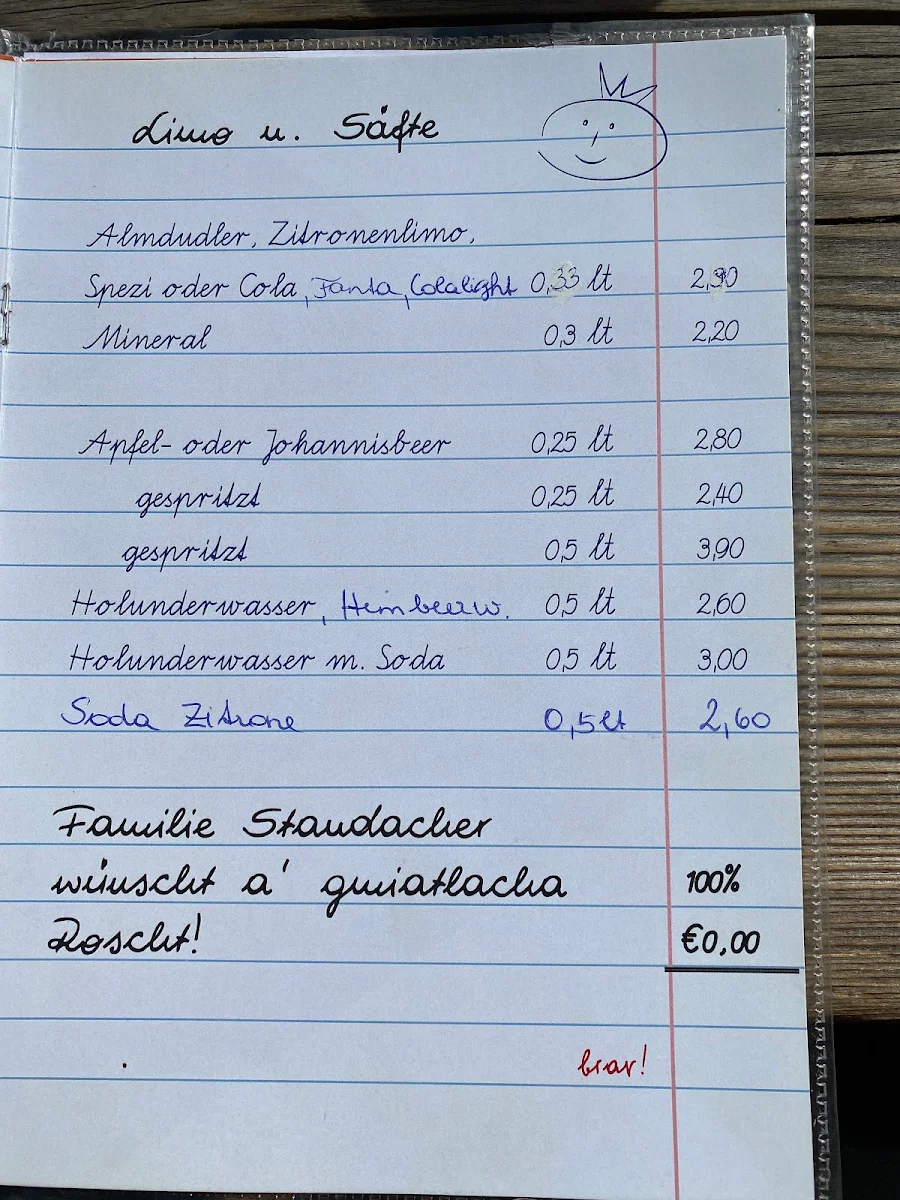 Limo u. Säfte
Almdudler, Zitronenlimo,
Spezi oder Cola, Fanta, Colalight 0,33 lt 2,90
Mineral 0,3 lt 2,20
Apfel- oder Johannisbeer 0,25 lt 2,80
gespritzt 0,25 lt 2,40
gespritzt 0,5 lt 3,90
Holunderwasser, Himbeerw. 0,5 lt 2,60
Holunderwasser m. Soda 0,5 lt 3,00
Soda Zitrone 0,5 lt 2,60
Familie Staudacher
wünscht a' gmiatlacha 100%
Roscht! €0,00
brav!